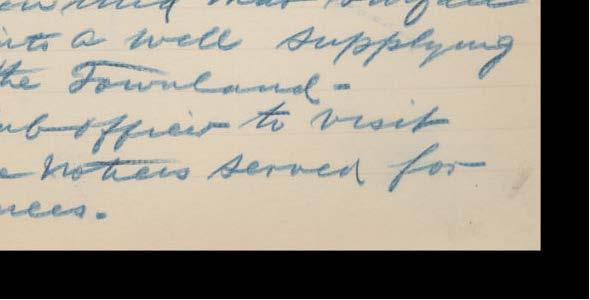 that
into a well supplying
the Townland -
sub-officer to visit
Notices served for